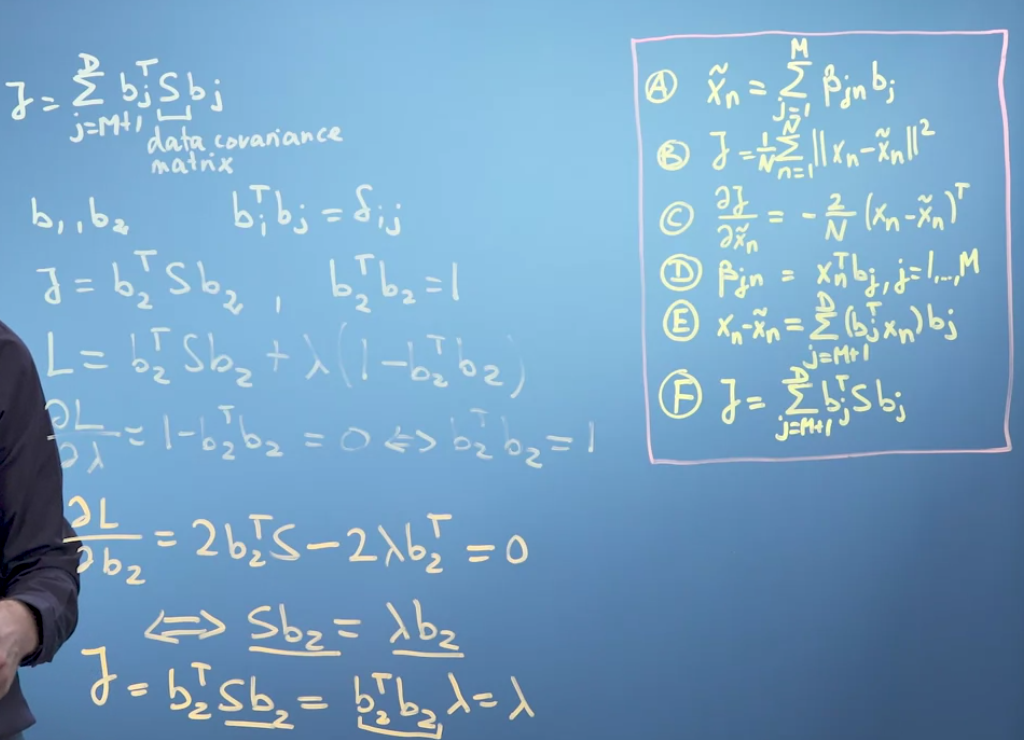 J = ∑_{j=M+1}^{D} b_j^T S b_j
data covariance
matrix
b_1, b_2   b_i^T b_j = δ_{ij}
J = b_2^T S b_2 , b_2^T b_2 = 1
L = b_2^T S b_2 + λ (1 - b_2^T b_2)
∂L/∂λ = 1 - b_2^T b_2 = 0 ⇔ b_2^T b_2 = 1
∂L/∂b_2 = 2b_2^T S - 2λb_2^T = 0
⇔ Sb_2 = λb_2
J = b_2^T Sb_2 = b_2^T b_2 λ = λ
Ⓐ x̃_n = ∑_{j=1}^{M} β_{jn} b_j
Ⓑ J = 1/N ∑_{n=1}^{N} ||x_n - x̃_n||^2
Ⓒ ∂J/∂x̃_n = - 2/N (x_n - x̃_n)^T
Ⓓ β_{jn} = x_n^T b_j, j=1,..,M
Ⓔ x_n - x̃_n = ∑_{j=M+1}^{D} (b_j^T x_n) b_j
Ⓕ J = ∑_{j=M+1}^{D} b_j^T S b_j